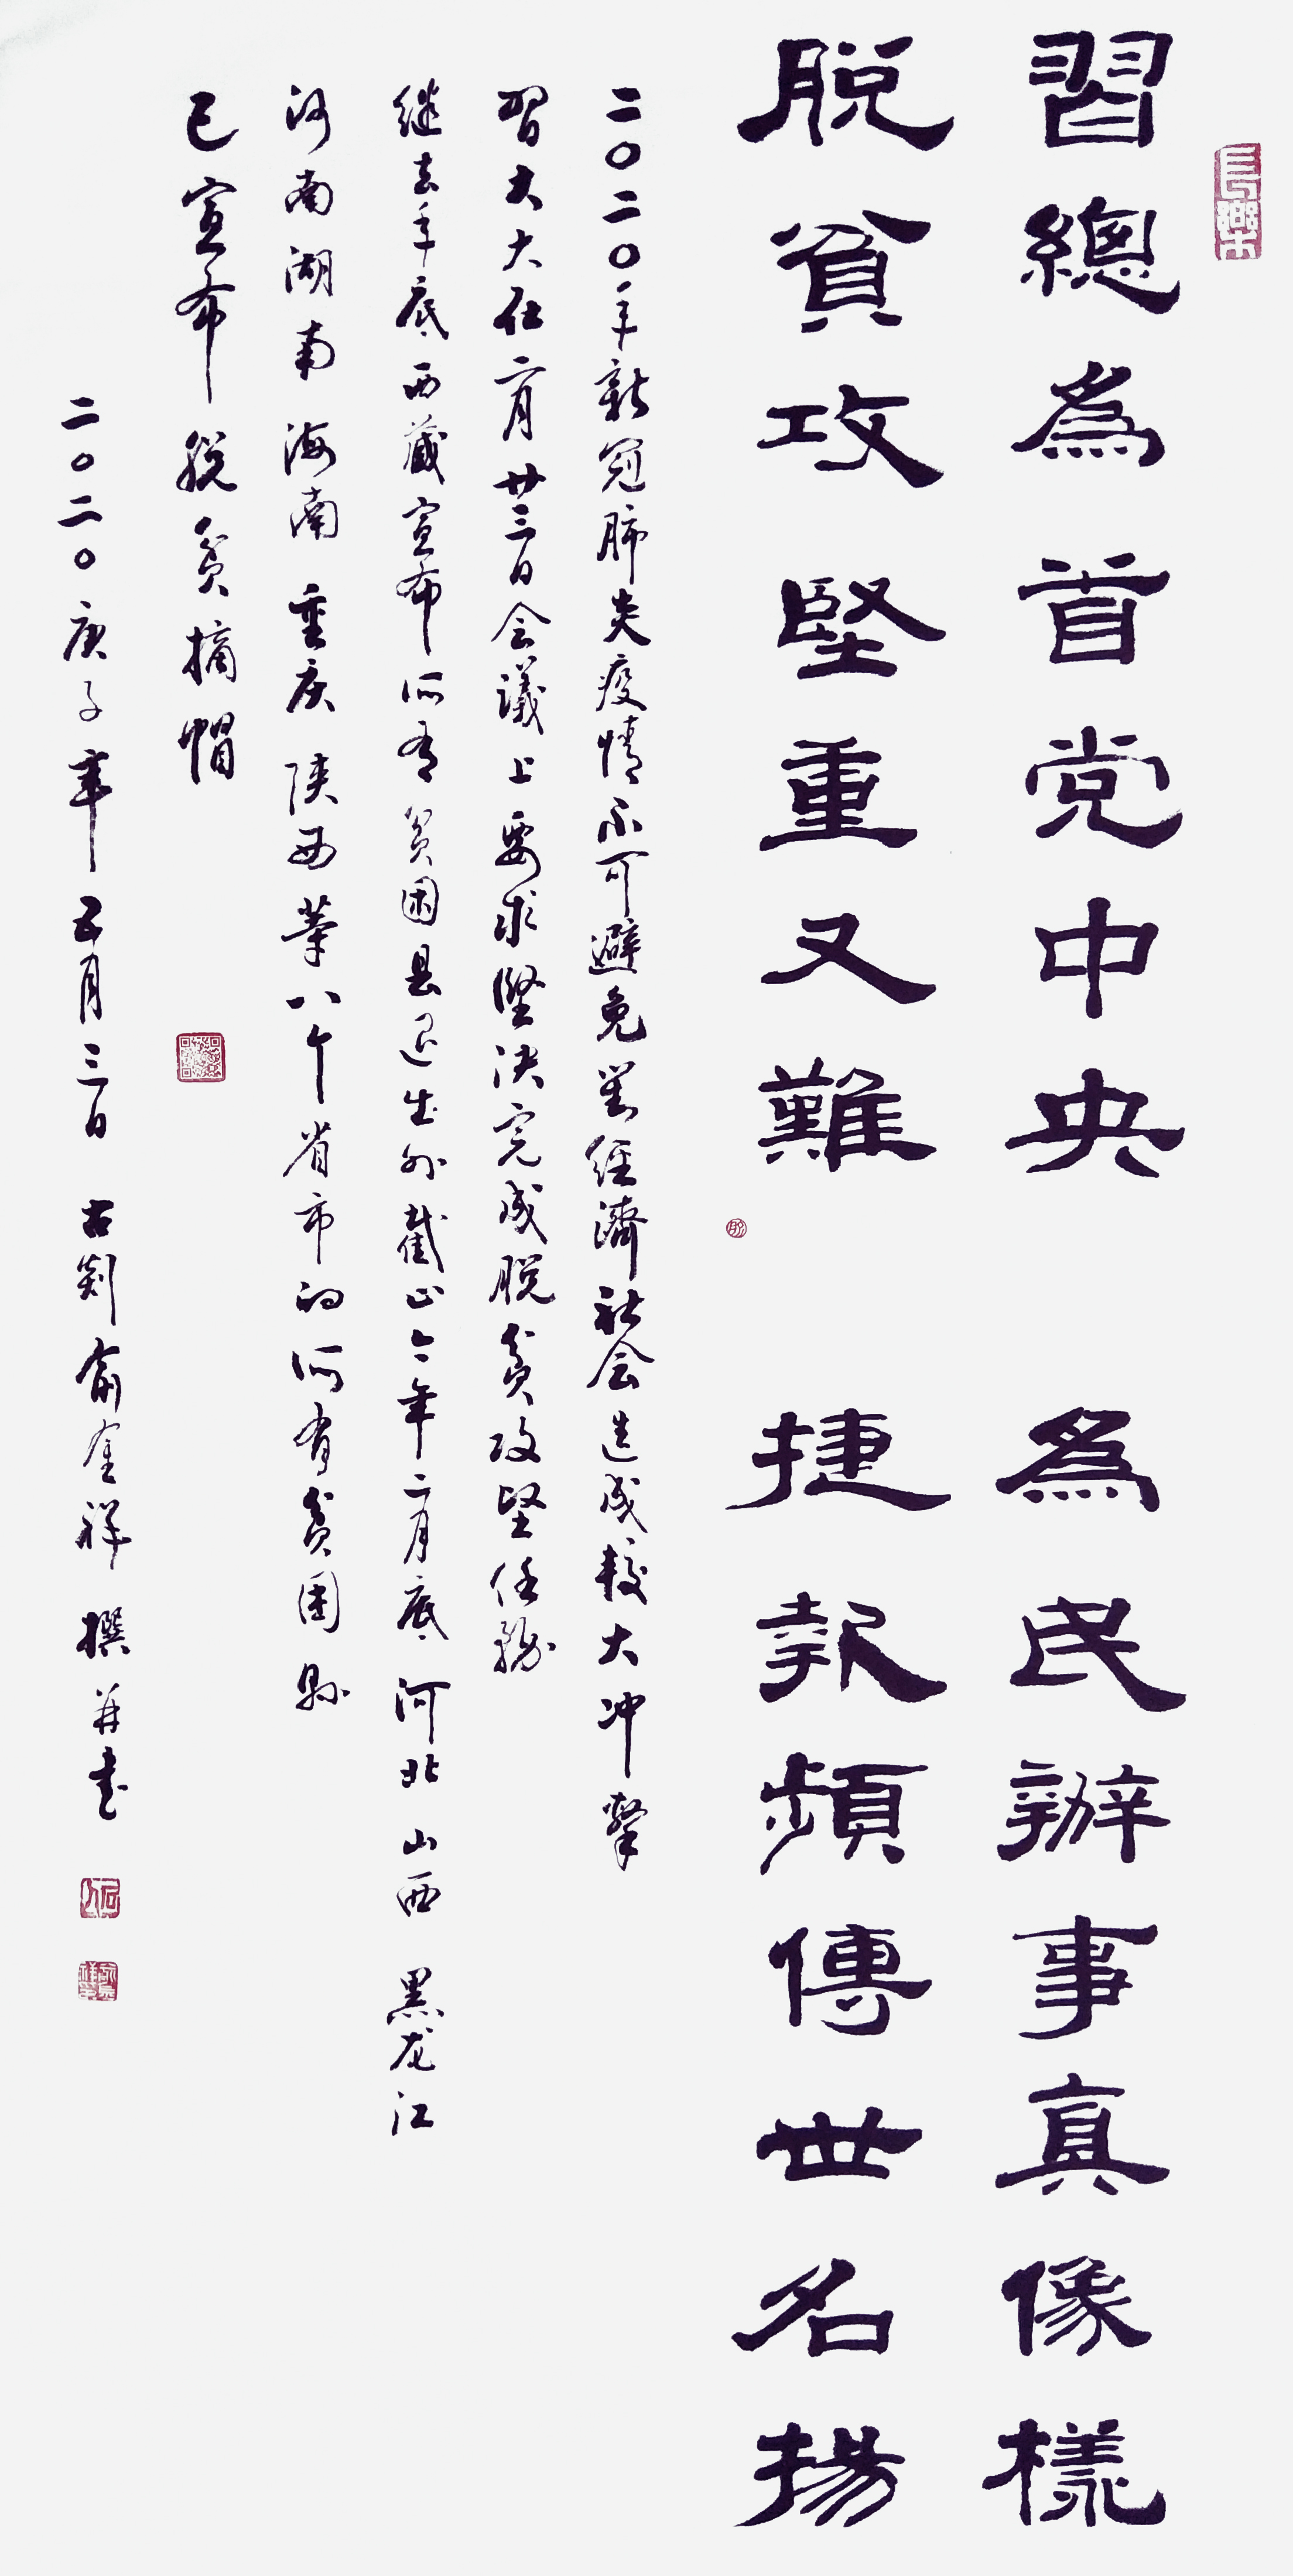 習總為首党中央 為民辦事真像樣
脱貧攻堅重又難 捷報頻傳世名揚
二〇二〇年新冠肺炎疫情不可避免对经濟社会造成较大冲擊
習大大在二月廿三日会議上要求堅决完成脱贫攻坚任務
继去年底西藏宣布所有贫困县退出外截止今年二月底河北山西黑龙江
河南湖南海南重庆陕西等八个省市的所有贫困縣
已宣布脱贫摘帽
二〇二〇庚子年五月三日 古剡俞奎祥撰并書
長樂